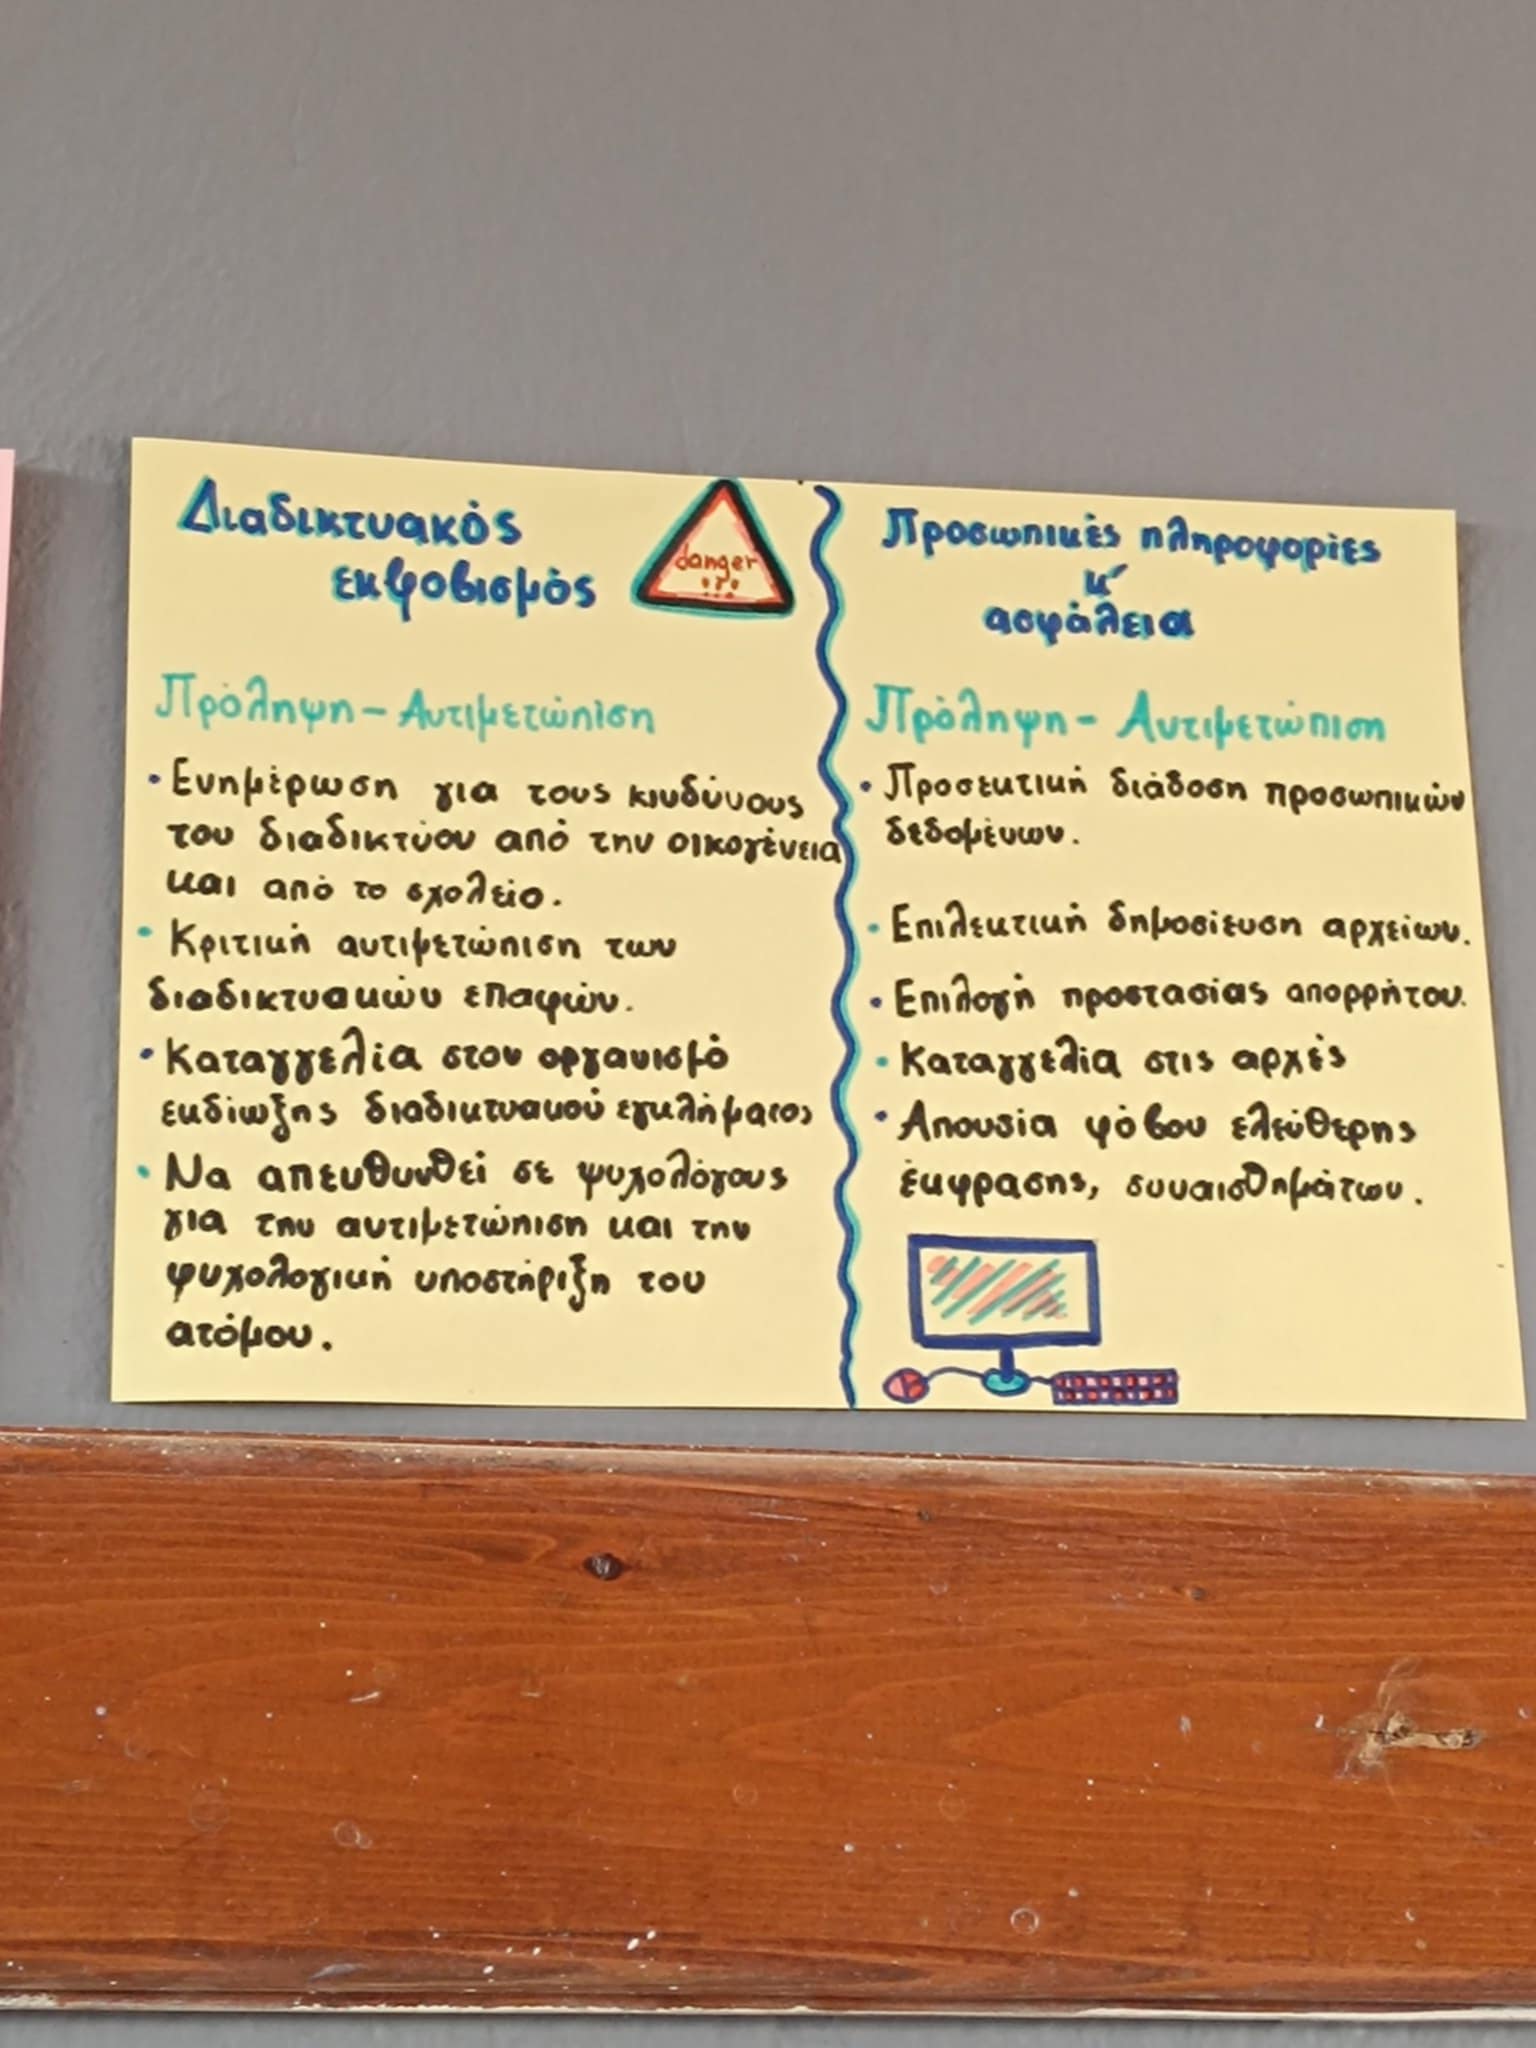 Διαδικτυακός
εκφοβισμός
danger
!!!
Πρόληψη - Αντιμετώπιση
• Ενημέρωση για τους κινδύνους
του διαδικτύου από την οικογένεια
και από το σχολείο.
• Κριτική αντιμετώπιση των
διαδικτυακών επαφών.
• Καταγγελία στον οργανισμό
εκδίωξης διαδικτυακού εγκλήματος
• Να απευθυνθεί σε ψυχολόγους
για την αντιμετώπιση και την
ψυχολογική υποστήριξη του
ατόμου.
Προσωπικές πληροφορίες
κ'
ασφάλεια
Πρόληψη - Αντιμετώπιση
• Προσεκτική διάδοση προσωπικών
δεδομένων.
• Επιλεκτική δημοσίευση αρχείων.
• Επιλογή προστασίας απορρήτου.
• Καταγγελία στις αρχές
• Απουσία φόβου ελεύθερης
έκφρασης, συναισθημάτων.